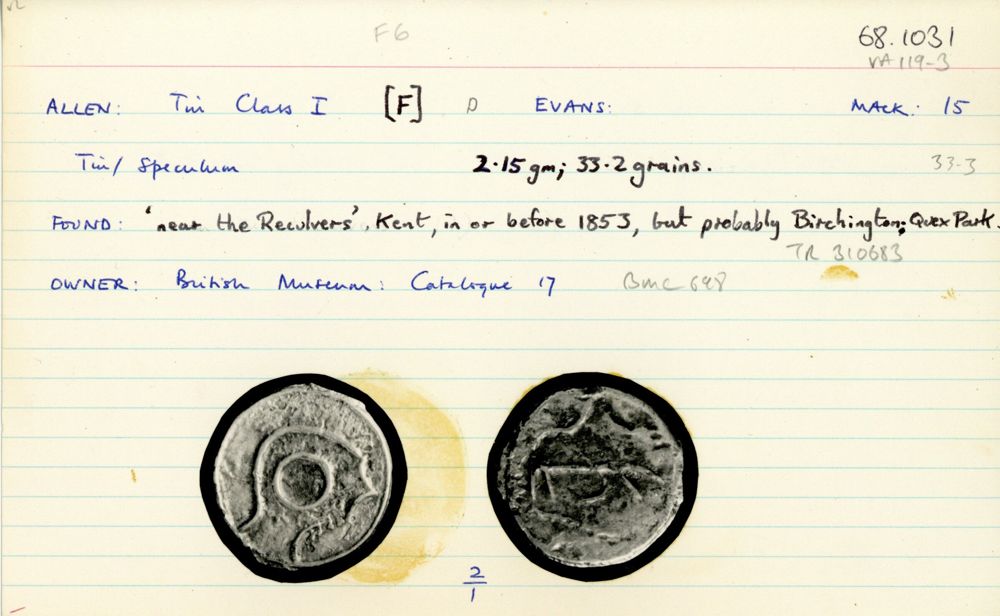 F6
68.1031
VA 119-3
ALLEN: Tin Class I [F] D EVANS: MACK: 15
Tin/ Speculum 2.15 gm; 33.2 grains. 33.3
FOUND: 'near the Reculvers', Kent, in or before 1853, but probably Birchington; Quex Park.
TR 310683
OWNER: British Museum: Catalogue 17 BMC 698
2/1